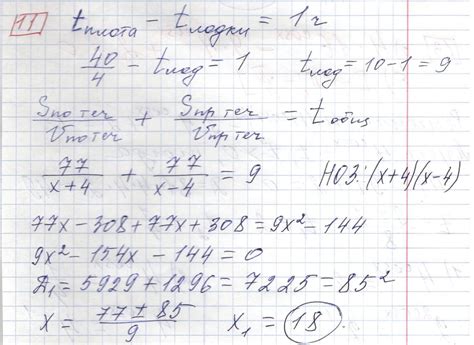 11 t плота − t лодки = 1 ч
40/4 − t лод = 1 t лод = 10 − 1 = 9
S по теч / V по теч + S пр теч / V пр теч = t общ
77/(x+4) + 77/(x−4) = 9 НОЗ: (x+4)(x−4)
77x − 308 + 77x + 308 = 9x² − 144
9x² − 154x − 144 = 0
Д₁ = 5929 + 1296 = 7225 = 85²
x = (77 ± 85)/9 x₁ = 18.